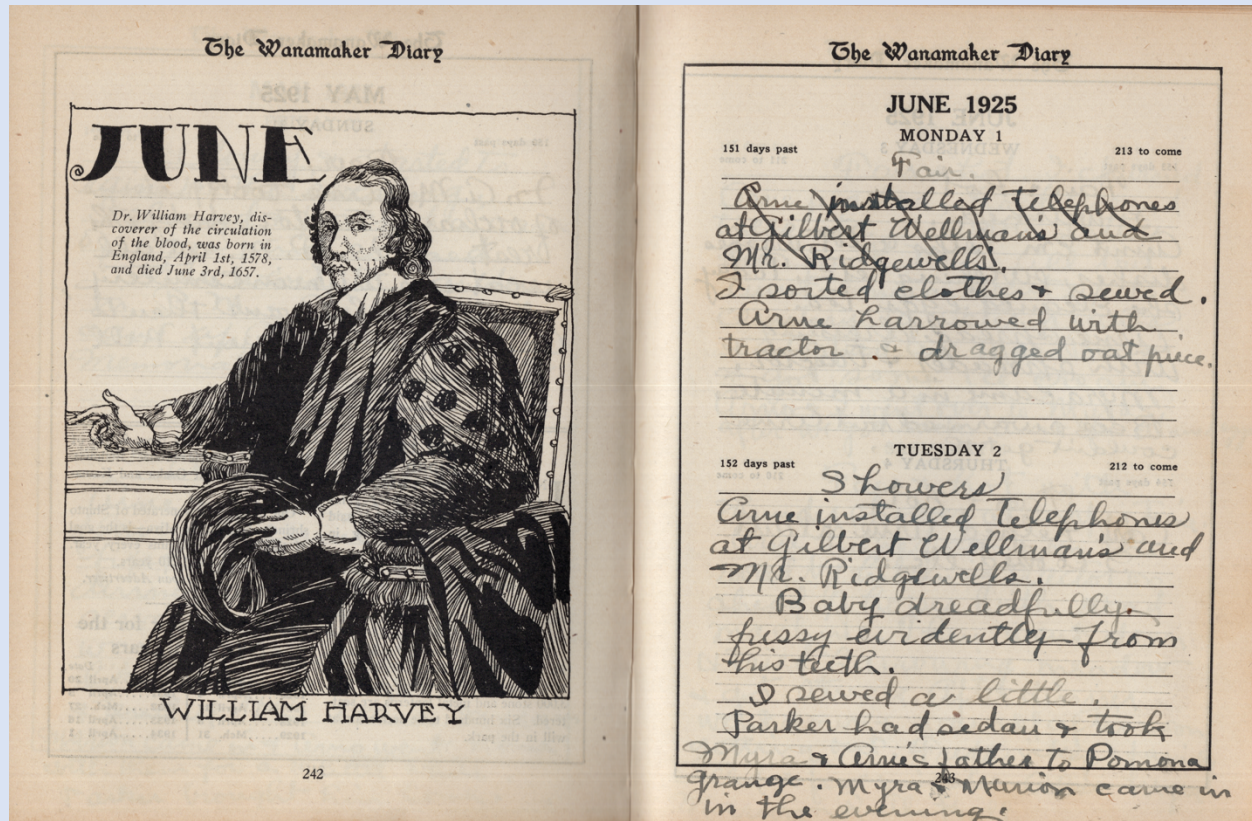 The Wanamaker Diary
JUNE
Dr. William Harvey, dis-
coverer of the circulation
of the blood, was born in
England, April 1st, 1578,
and died June 3rd, 1657.
WILLIAM HARVEY
242
The Wanamaker Diary
JUNE 1925
MONDAY 1
151 days past 213 to come
Fair.
Arne installed telephones
at Gilbert Wellman's and
Mr. Ridgewells.
I sorted clothes & sewed.
Arne harrowed with
tractor & dragged oat piece.
TUESDAY 2
152 days past 212 to come
Showers
Arne installed telephones
at Gilbert Wellman's and
Mr. Ridgewells.
Baby dreadfully
fussy evidently from
his teeth.
I sewed a little.
Parker had sedan & took
Myra & Arne's father to Pomona
243
grange. Myra & Marion came in
in the evening.